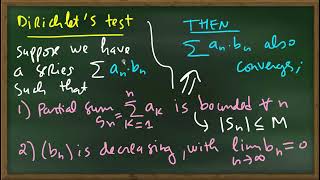 Dirichlet's test
Suppose we have
a series ∑ aₙ·bₙ
such that
THEN
∑ aₙ·bₙ also
converges;
1) Partial sum Sₙ = ∑ₖ₌₁ⁿ aₖ is bounded ∀ n
→ |Sₙ| ≤ M
2) (bₙ) is decreasing, with lim n→∞ bₙ = 0